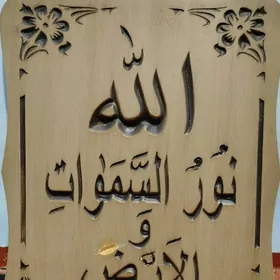 الله
نُورُ السَّمَوَاتِ
وَ
الاَرْضِ